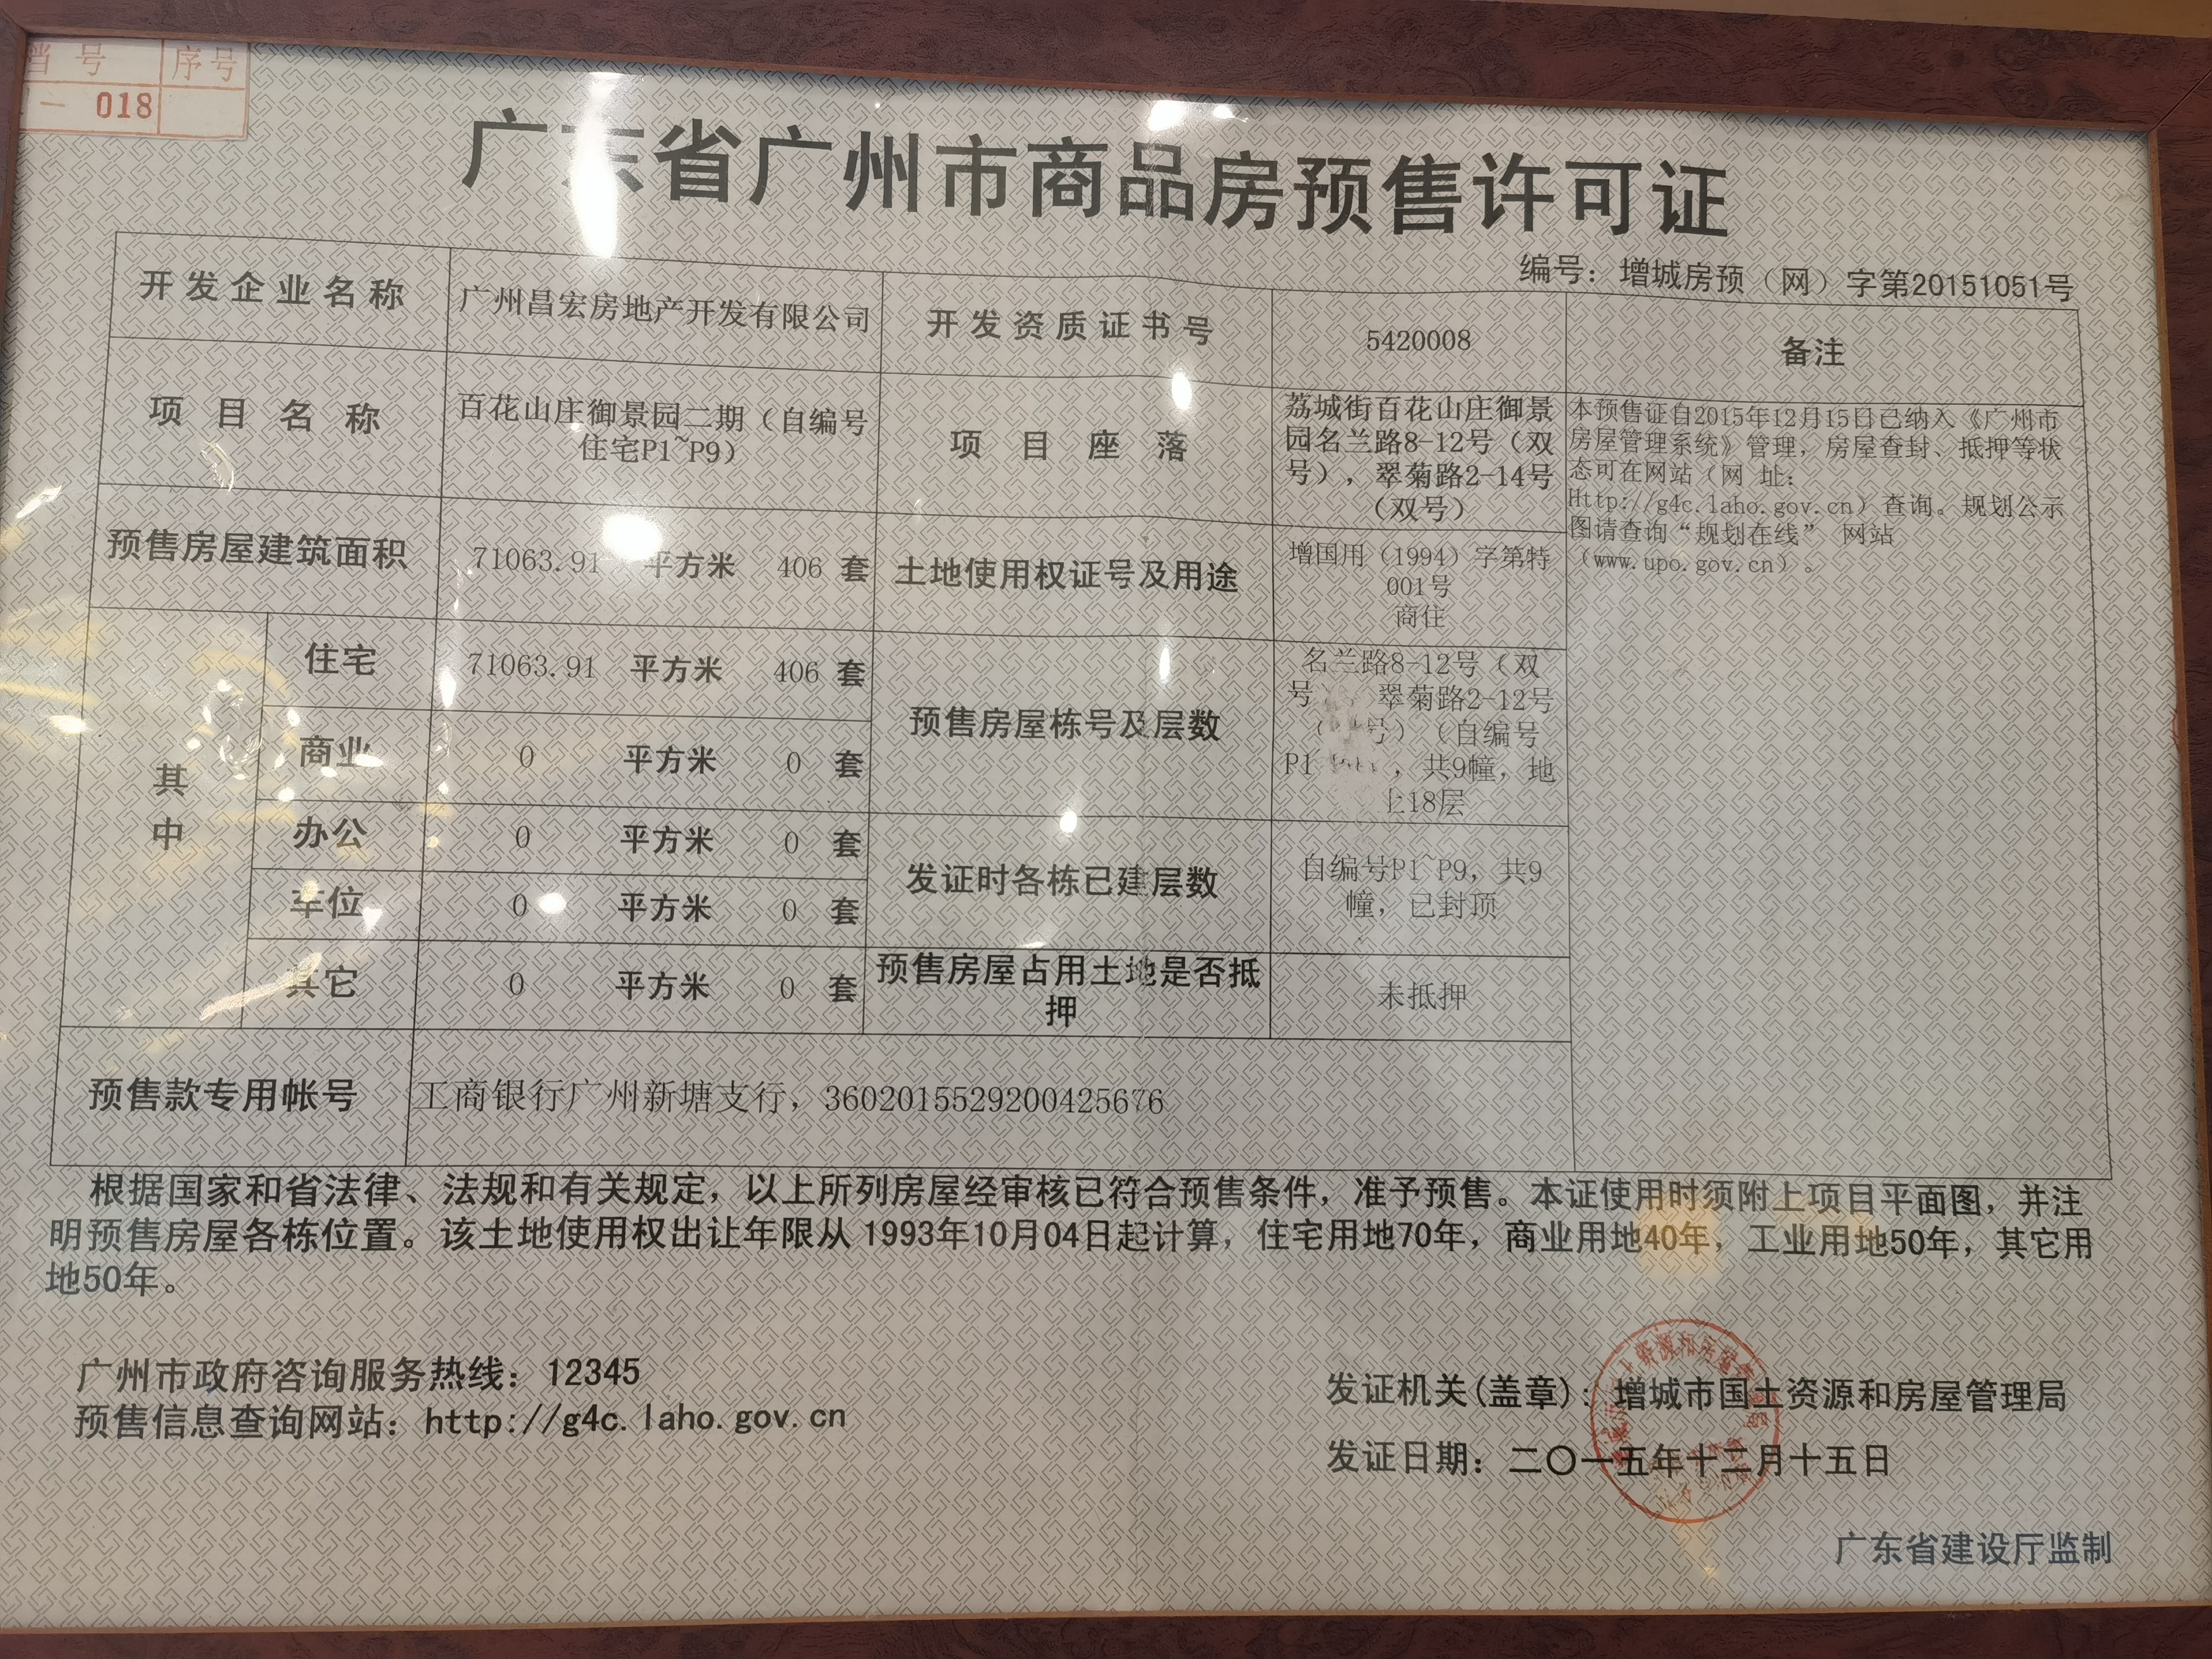 档号 序号
- 018
广东省广州市商品房预售许可证
编号：增城房预（网）字第20151051号
开发企业名称 广州昌宏房地产开发有限公司 开发资质证书号 5420008 备注
项目名称 百花山庄御景园二期（自编号
住宅P1~P9）
项目座落 荔城街百花山庄御景
园名兰路8-12号（双
号），翠菊路2-14号
（双号）
本预售证自2015年12月15日已纳入《广州市
房屋管理系统》管理，房屋查封、抵押等状
态可在网站（网 址：
Http://g4c.laho.gov.cn）查询。规划公示
图请查询“规划在线” 网站
（www.upo.gov.cn）。
预售房屋建筑面积 71063.91 平方米 406 套 土地使用权证号及用途 增国用（1994）字第特
001号
商住
其中
住宅 71063.91 平方米 406 套
商业 0 平方米 0 套
办公 0 平方米 0 套
车位 0 平方米 0 套
其它 0 平方米 0 套
预售房屋栋号及层数 名兰路8-12号（双
号 翠菊路2-12号
（ 号）（自编号
P1 ，共9幢，地
上18层
发证时各栋已建层数 自编号P1~P9，共9
幢，已封顶
预售房屋占用土地是否抵
押
未抵押
预售款专用帐号 工商银行广州新塘支行，3602015529200425676
根据国家和省法律、法规和有关规定，以上所列房屋经审核已符合预售条件，准予预售。本证使用时须附上项目平面图，并注
明预售房屋各栋位置。该土地使用权出让年限从 1993年10月04日起计算，住宅用地70年，商业用地40年，工业用地50年，其它用
地50年。
广州市政府咨询服务热线：12345
预售信息查询网站：http://g4c.laho.gov.cn
发证机关(盖章)：增城市国土资源和房屋管理局
发证日期：二〇一五年十二月十五日
广东省建设厅监制